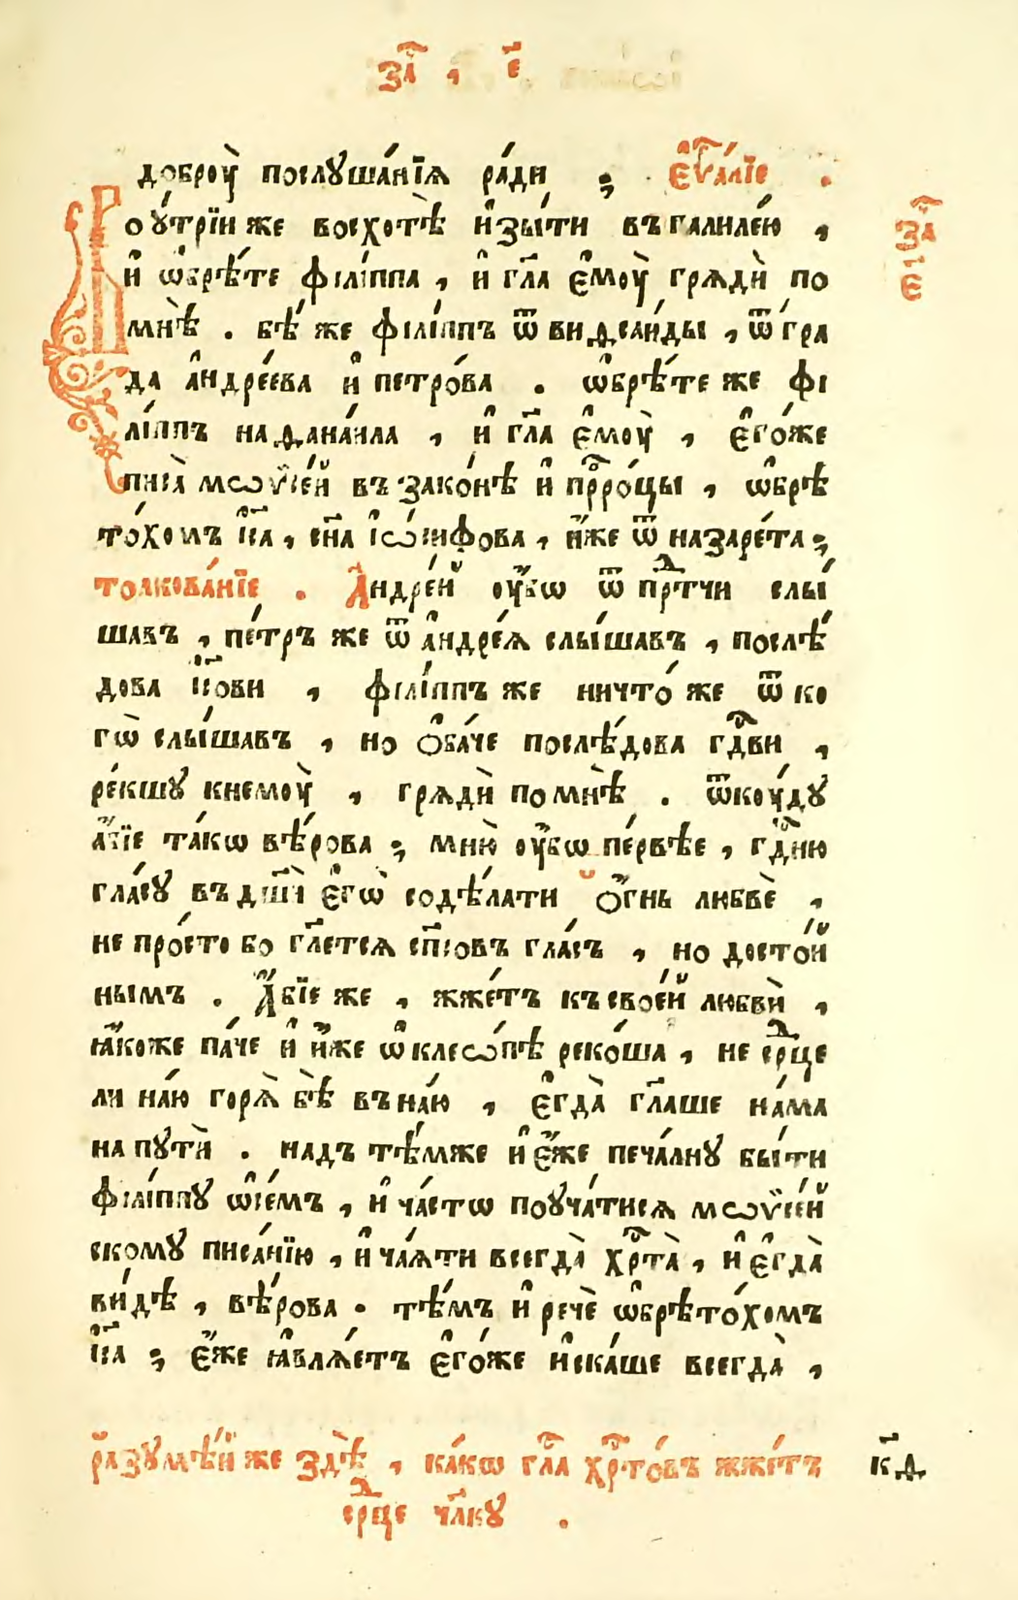 за҇ , є҃
доброу̀ послꙋша́нїѧ ра́ди ; є҆ѵ҃а́лїе .
Во у҆́трїи же восхотѣ̀ и҆зы́ти въ галиле́ю , за҇ є҃
и҆ ѡ҆брѣ́те фїлі́ппа , и҆ гл҃а є҆моу̀ грѧдѝ по
мнѣ̀ . бѣ́ же фїлі́ппъ ѿ виѳсаи́ды , ѿ гра
да а҆ндре́ева и҆ петро́ва . ѡ҆брѣ́те же фі
лі́ппъ наѳана́ила , и҆ гл҃а є҆моу̀ , є҆го́же
писа̀ мѡѷсе́й въ зако́нѣ и҆ прⷪ҇ро́цы , ѡ҆брѣ
то́хомъ і҆и҃са , сн҃а і҆ѡ́сифова , и҆́же ѿ назаре́та ;
толкова́нїе . А҆ндре́й оу҆́бѡ ѿ прⷣтчи слы́
шавъ , пе́тръ же ѿ а҆ндре́ѧ слы́шавъ , послѣ́
дова і҆и҃сови , фїлі́ппъ же ничто́ же ѿ ко
гѡ̀ слы́шавъ , но ѻ҆ба́че послѣ́дова гдⷭ҇ви ,
ре́кшꙋ кнемоу̀ , грѧдѝ по мнѣ̀ . ѿкоу́дꙋ
а҆́бїе та́кѡ вѣ́рова ; мню̀ оу҆́бѡ пе́рвѣе , гдⷭ҇ню
гла́сꙋ въ дш҃ѝ є҆гѡ̀ содѣ́лати ѻ҆́гнь любвѐ ,
не про́сто бо гл҃етсѧ сп҃совъ гла́съ , но досто́й
нымъ . А҆́бїе же , жже́тъ къ свое́й любвѝ ,
ꙗ҆́коже па́че и҆ и҆́же ѡ҆ клеѡ́пѣ реко́ша , не срⷣце
ли на́ю горѧ̀ бѣ̀ въ на́ю , є҆гда̀ гл҃аше на́ма
на пꙋтѝ . надъ тѣ́мже и҆ є҆́же печа́лнꙋ бы́ти
фїлі́ппꙋ ѡ҆ се́мъ , и҆ ча́стѡ поꙋча́тисѧ мѡѷсе́й
скомꙋ писа́нїю , и҆ ча́ѧти всегда̀ хрⷭ҇та̀ , и҆ є҆гда̀
ви́дѣ , вѣ́рова . тѣ́мъ и҆ речѐ ѡ҆брѣто́хомъ
і҆и҃са ; є҆́же ꙗ҆влѧ́етъ є҆го́же и҆ска́ше всегда̀ ,
разꙋмѣ́й же здѣ̀ , ка́кѡ гл҃а хрⷭ҇то́въ жже́тъ к҃ѳ
срⷣце чл҃кꙋ .